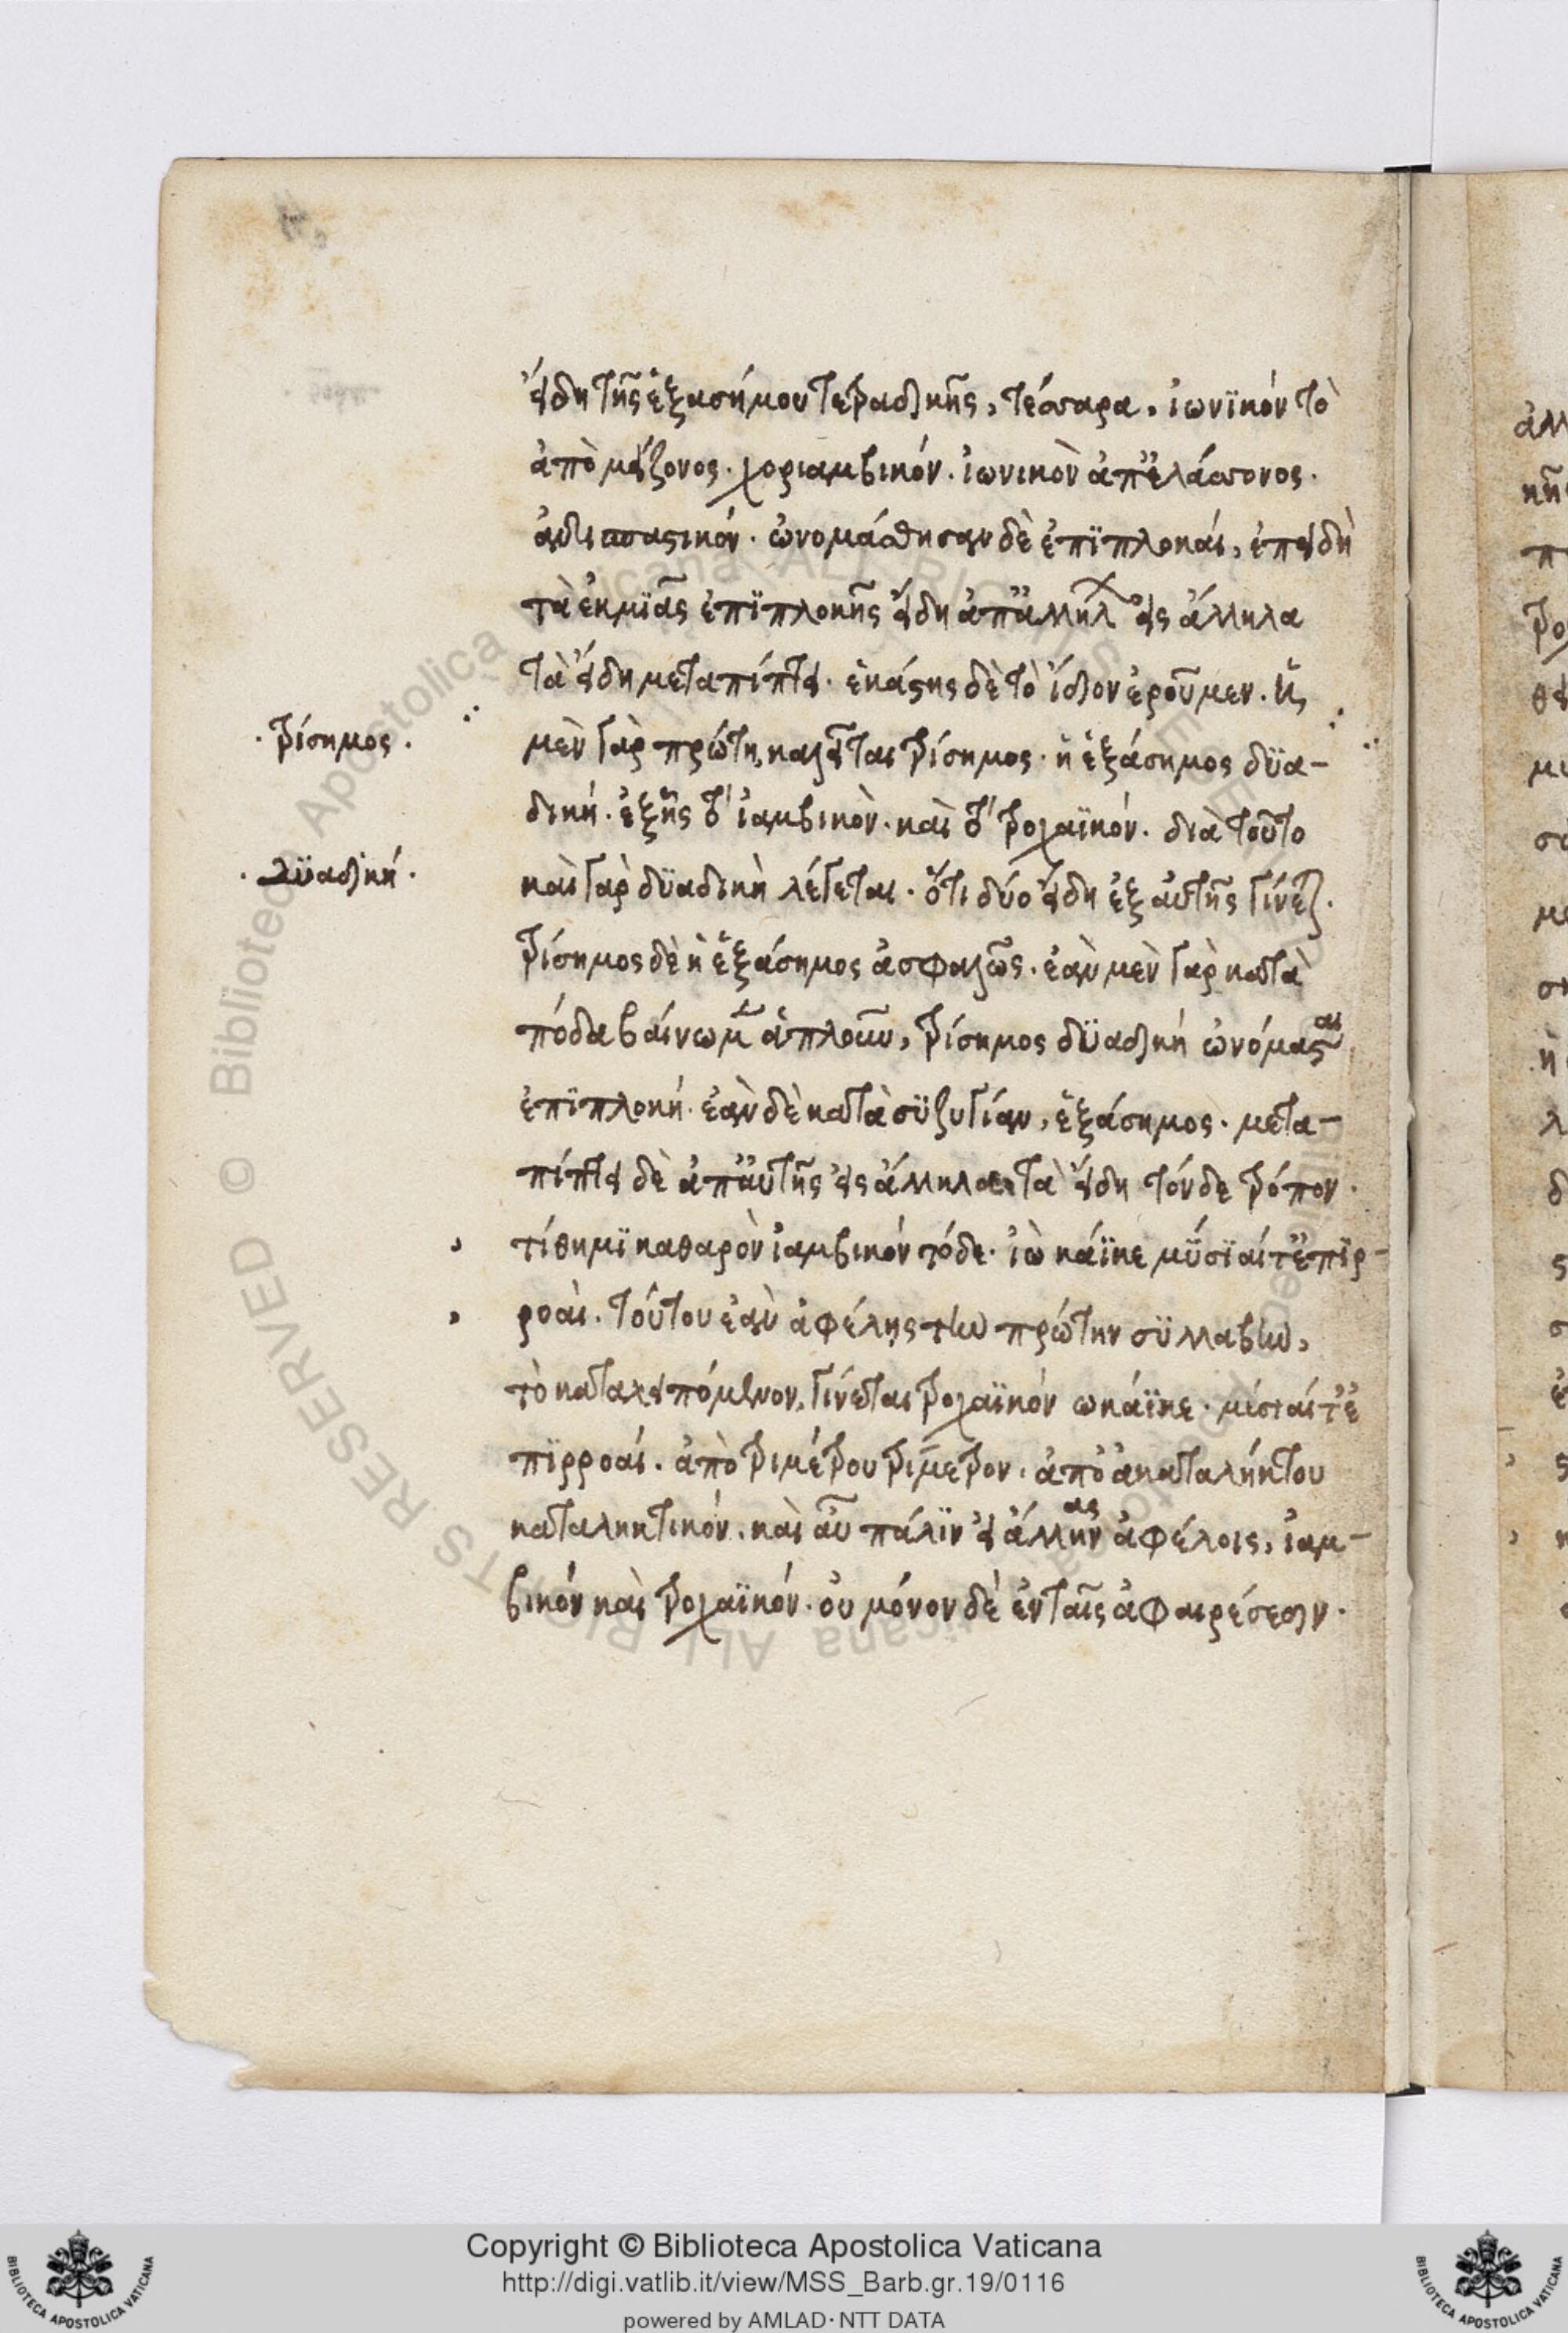 εἴδη τῆς ἑξασήμου τετραδικῆς, τέσσαρα. ἰωνϊκόν τὸ
ἀπὸ μείζονος. χοριαμβικόν. ἰωνικὸν ἀπ' ἐλάσσονος.
ἀντισπαστικόν. ὠνομάσθησαν δὲ ἐπϊπλοκαί, ἐπειδὴ
τὰ ἐκ μϊᾶς ἐπϊπλοκῆς εἴδη ἀπ' ἀλλήλ εἰς ἄλληλα
τὰ εἴδη μεταπίπτει. ἑκάστης δὲ τὸ ἴδιον ἐροῦμεν. ἡ
· τρίσημος ·
μὲν γὰρ πρώτη, καλεῖται τρίσημος. ἡ ἑξάσημος δϋα-
δική. ἐξ ἧς τ' ἰαμβικὸν. καὶ τ' τροχαϊκόν. διὰ τοῦτο
· δϋαδική ·
καὶ γὰρ δϋαδικὴ λέγεται. ὅτι δύο εἴδη ἐξ αὐτῆς γίνεται.
τρίσημος δὲ ἡ ἑξάσημος ἀσφαλῶς. ἐὰν μὲν γὰρ κατὰ
πόδα βαίνωμεν ἁπλοῦν, τρίσημος δϋαδική ὠνόμασται
ἐπϊπλοκή. ἐὰν δὲ κατὰ σϋζυγίαν, ἑξάσημος. μετα-
πίπτει δὲ ἀπ' αὐτῆς εἰς ἄλληλα τὰ εἴδη τόνδε τρόπον.
τίθημϊ καθαρὸν ἰαμβικόν τόδε. ἰὼ κάϊκε μϋσϊαί τ' ἐπϊρ-
ροαὶ. τούτου ἐὰν ἀφέλῃς τὴν πρώτην σϋλλαβὴν,
τὸ καταλειπόμενον, γίνεται τροχαϊκόν ωκάϊκε. μύσιαί τ' ἐ
πϊρροαί. ἀπὸ τριμέτρου τρίμετρον. ἀπὸ ἀκαταλήκτου
καταληκτικόν. καὶ αὖ πάλϊν εἰ ἄλλην ας ἀφέλοις, ἰαμ-
βικόν καὶ τροχαϊκόν. οὐ μόνον δὲ ἐν ταῖς ἀφαιρέσεσιν.
Copyright © Biblioteca Apostolica Vaticana
http://digi.vatlib.it/view/MSS_Barb.gr.19/0116
powered by AMLAD · NTT DATA